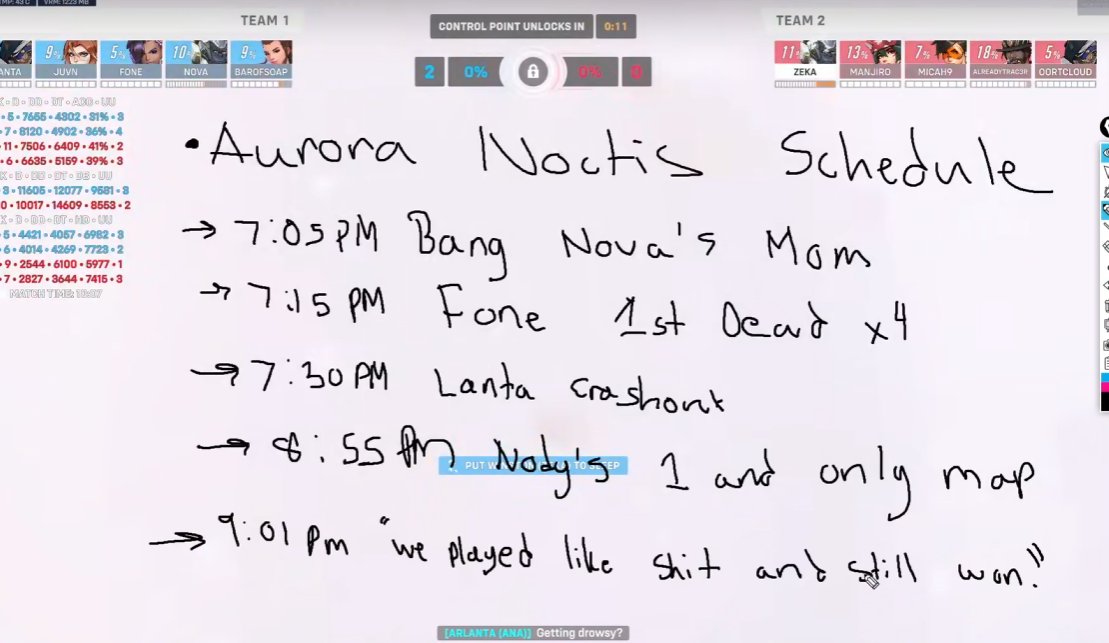 TEAM 1
CONTROL POINT UNLOCKS IN 0:11
TEAM 2
2 0% 0%
9% 5% 10% 9%
JUVN FONE NOVA BAROFSOAP
11% 13% 7% 18% 5%
ZEKA MANJIRO MICAH9 ALREADYTRAC3R OORTCLOUD
K • D • DD • DT • A3B • UU
• 5 • 7655 • 4302 • 31% • 3
• 7 • 8120 • 4902 • 36% • 4
• 11 • 7506 • 6409 • 41% • 2
• 6 • 6635 • 5159 • 39% • 3
3 • 11605 • 12077 • 9581 • 3
0 • 10017 • 14609 • 8553 • 2
5 • 4421 • 4057 • 6982 • 3
• 6 • 4014 • 4269 • 7723 • 2
• 9 • 2544 • 6100 • 5977 • 1
• 7 • 2827 • 3644 • 7415 • 3
MATCH TIME:
• Aurora Noctis Schedule
→ 7:05 PM Bang Nova's Mom
→ 7:15 PM Fone 1st Dead x4
→ 7:30 PM Lanta crashout
→ 8:55 PM Nody's 1 and only map
→ 9:01 Pm "we played like shit and still won!"
[ARLANTA (ANA)] Getting drowsy?